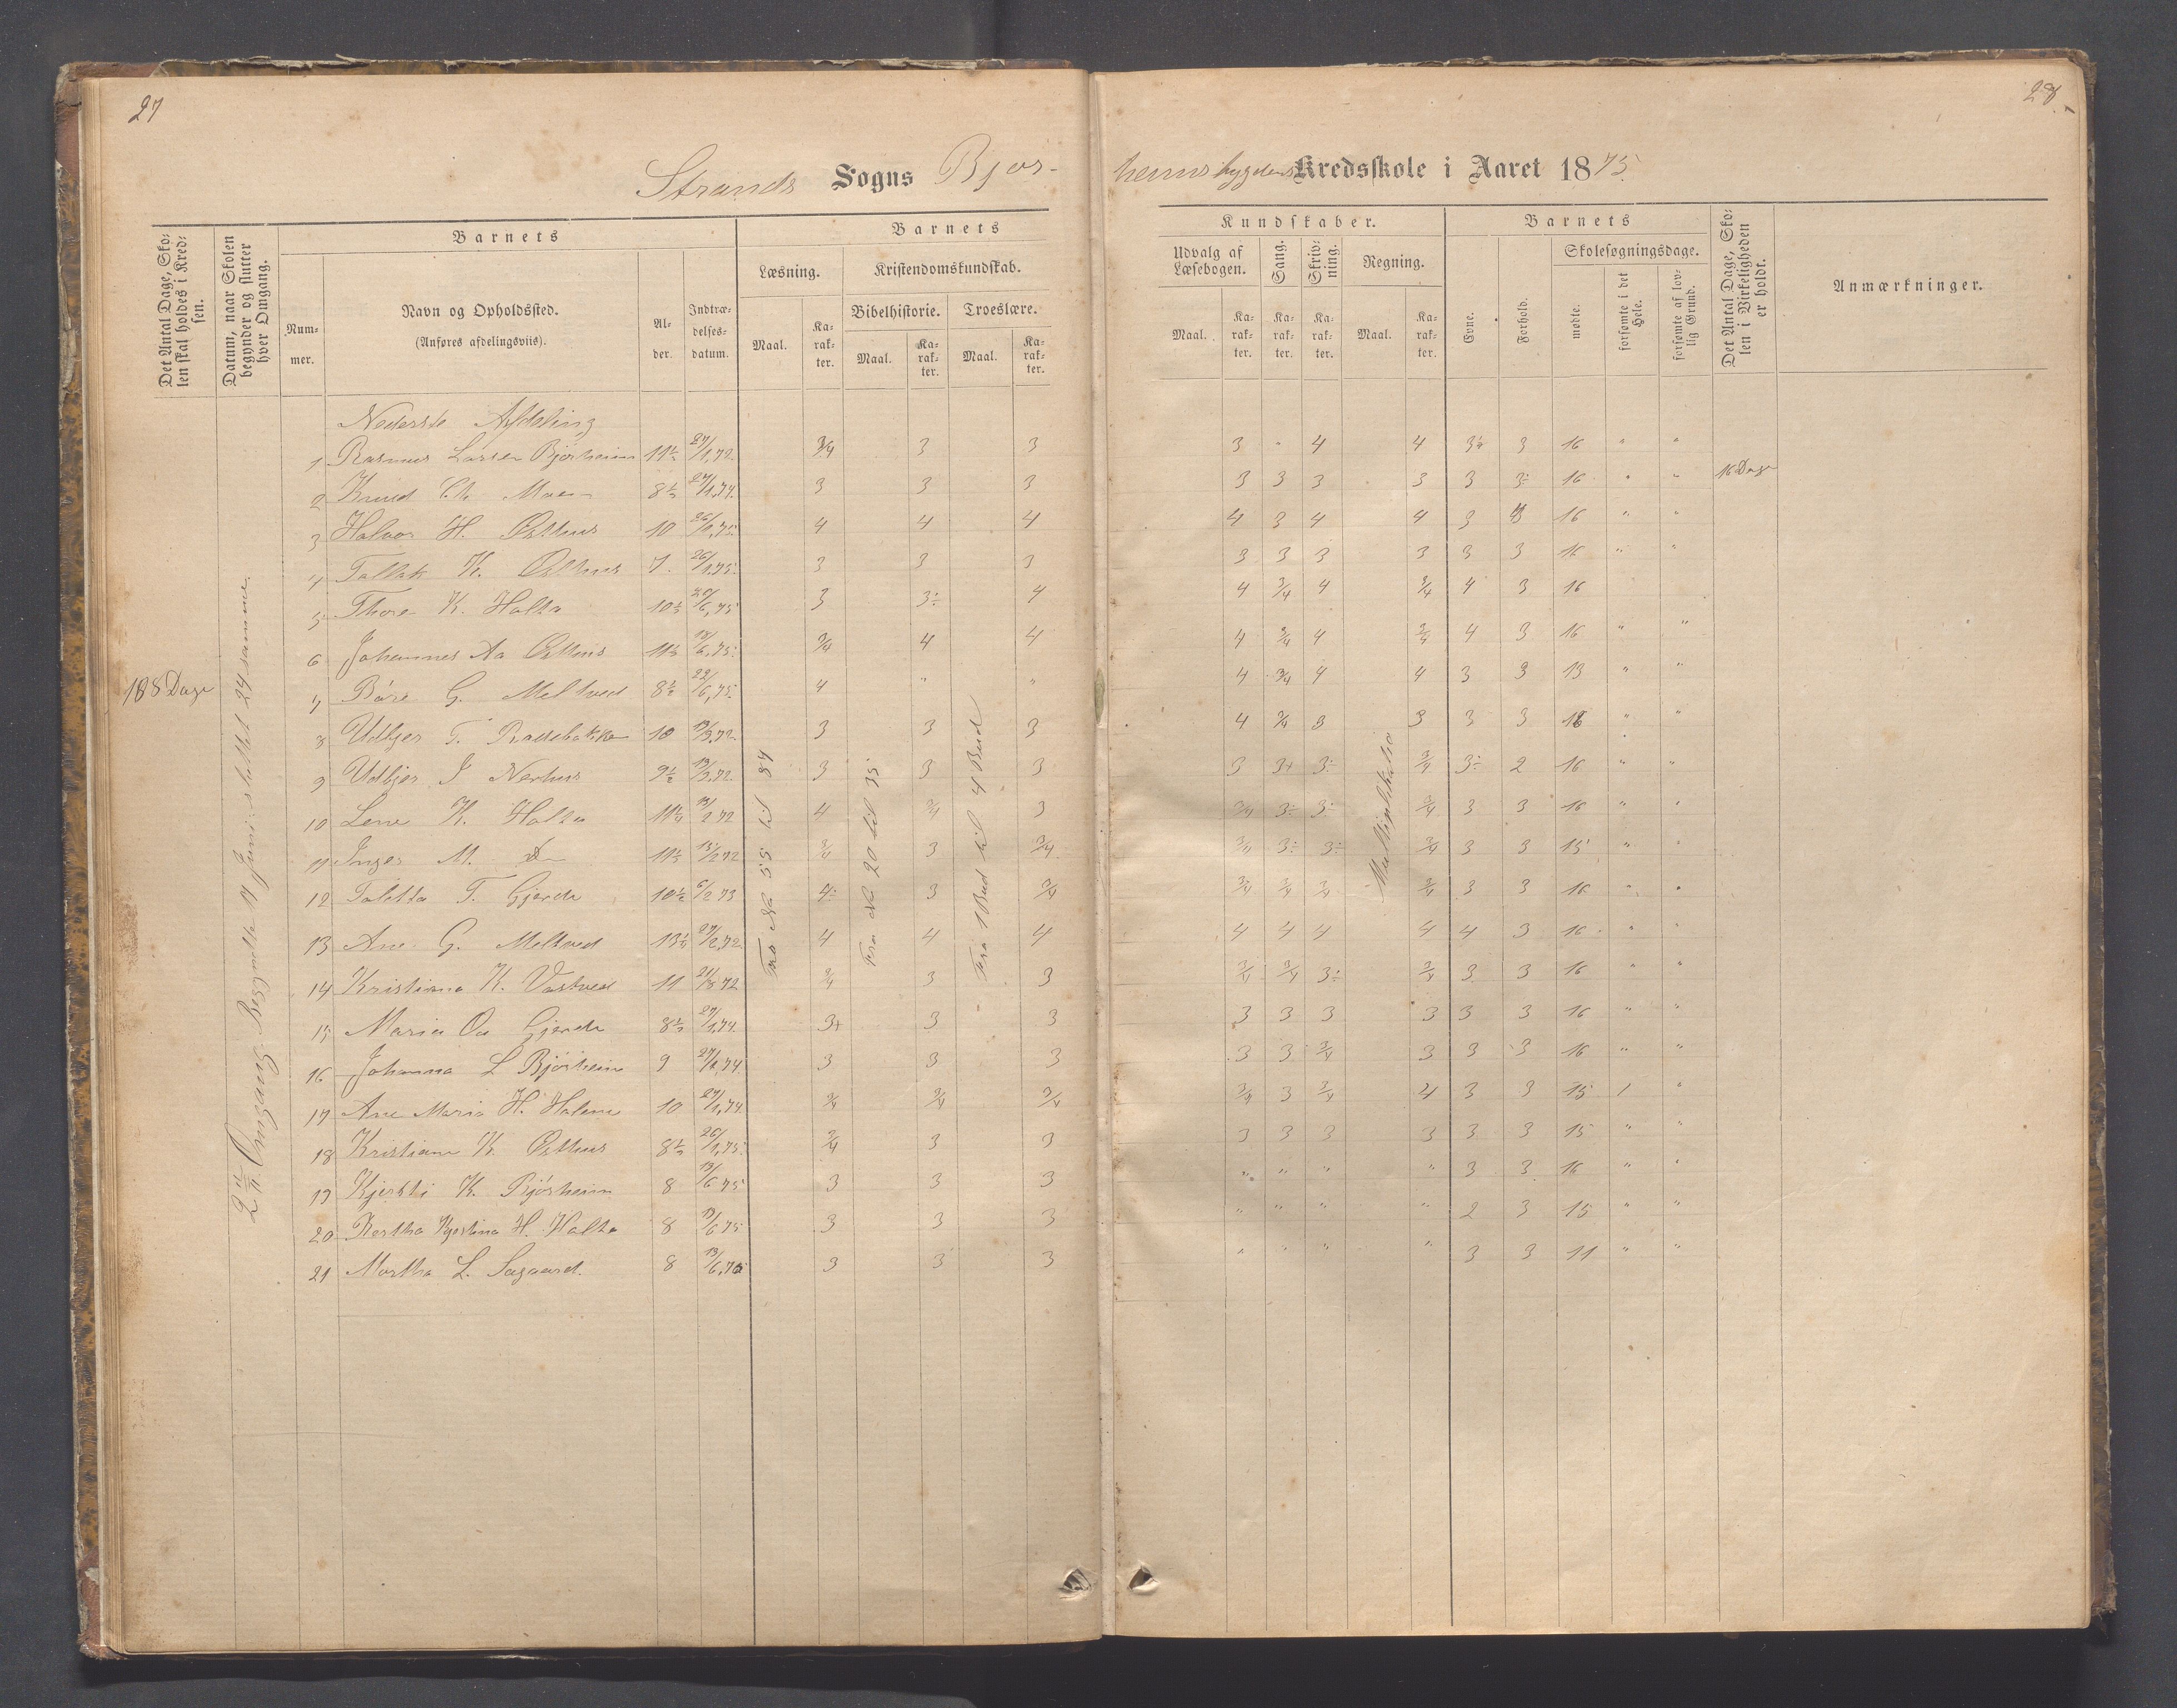 27
28
Strands Sogns Bjør-
heimsbygdens Kredsskole i Aaret 1875.
Det Antal Dage, Skolen skal holdes i Kredsen.
Datum, naar Skolen begynder og slutter hver Omgang.
Barnets
Nummer.
Navn og Opholdssted.
(Anføres afdelingsviis).
Alder.
Indtrædelsesdatum.
Barnets
Læsning.
Maal.
Karakter.
Kristendomskundskab.
Bibelhistorie.
Maal.
Karakter.
Troeslære.
Maal.
Karakter.
Kundskaber.
Udvalg af Læsebogen.
Maal.
Karakter.
Sang.
Karakter.
Skrivning.
Karakter.
Regning.
Maal.
Karakter.
Barnets
Evne.
Forhold.
Skolesøgningsdage.
mødte.
forsømte i det Hele.
forsømte af lovlig Grund.
Det Antal Dage, Skolen i Virkeligheden er holdt.
Anmærkninger.
Nederste Afdeling
1 Rasmus Larsen Bjørheim 11½ 27/1,72. 3/4 3 3 3 " 4 4 3 16 " "
2 Knud Ch. Moe 8½ 27/1,74. 3 3 3 3 3 3 3 3 3÷ 16 " " 16 Dage
3 Halvor H. Østhus 10 26/1,75. 4 4 4 4 3 4 4 3 3 16 " "
4 Tallak K. Østhus 7. 26/1,75. 3 3 3 3 3 3 3 3 3 16 " "
5 Thore K. Holta 10½ 3 3÷ 4 4 3/4 4 3/4 4 3 16
6 Johannes Aa Østhus 11½ 18/6,75. 3/4 4 4 4 3/4 4 3/4 4 3 16 " "
7 Båre G. Meltved 8½ 22/6,75. 4 " " 4 3/4 4 4 3 3 13 " "
8 Udbjør T. 10 3 3 3 4 3/4 3 3 3 3 16 " "
9 Udbjør J Nerhus 9½ 3 3 3 3 3+ 3÷ 3/4 3÷ 2 16 " "
10 Lene K. Holta 4 3/4 3 3/4 3÷ 3÷ 3/4 3 3 16 " "
11 Inger M. 11½ 13/2 72 3/4 3 3/4 3/4 3÷ 3÷ 3/4 3 3 15 " "
12 Talette T. Gjerde 10½ 6/2 73 4÷ 3 3/4 3/4 3/4 3/4 3/4 3 3 16 " "
13 Ane G. Meltved 27/2,72. 4 4 4 4 4 4 4 4 3 16 " "
14 Kristiana K. Vastved 11 3/4 3 3 3/4 3/4 3÷ 3/4 3 3 16 " "
15 Maria Gjerde 8½ 27/1,74. 3+ 3 3 3 3 3 3 3 3 16 " "
16 Johanna L Bjørheim 9 27/1,74. 3 3 3 3 3 3/4 3 3 3 16 " "
17 Ane Maria H. Holene 10 27/1,74. 3/4 3/4 3/4 3/4 3 3/4 4 3 3 15 1 "
18 Kristiane K. Østhus 8½ 26/1,75. 3/4 3 3 3 3 3 3 3 3 15 " "
19 Kjersti K. Bjørheim 8 13/6 75 3 3 3 " " " " 3 3 16 " "
20 Bertha H. Holta 8 13/6 75 3 3 3 " " " " 2 3 15 " "
21 Martha L. Sagaard. 8 13/6,75 3 3 3 " " " " 3 3 11 " "
Dage
Omgang. Begyndte Juni; sluttet 24 samme.
Fra No 55 til 84
Fra No 20 til 35
Fra 1 Bud til 4 Bud